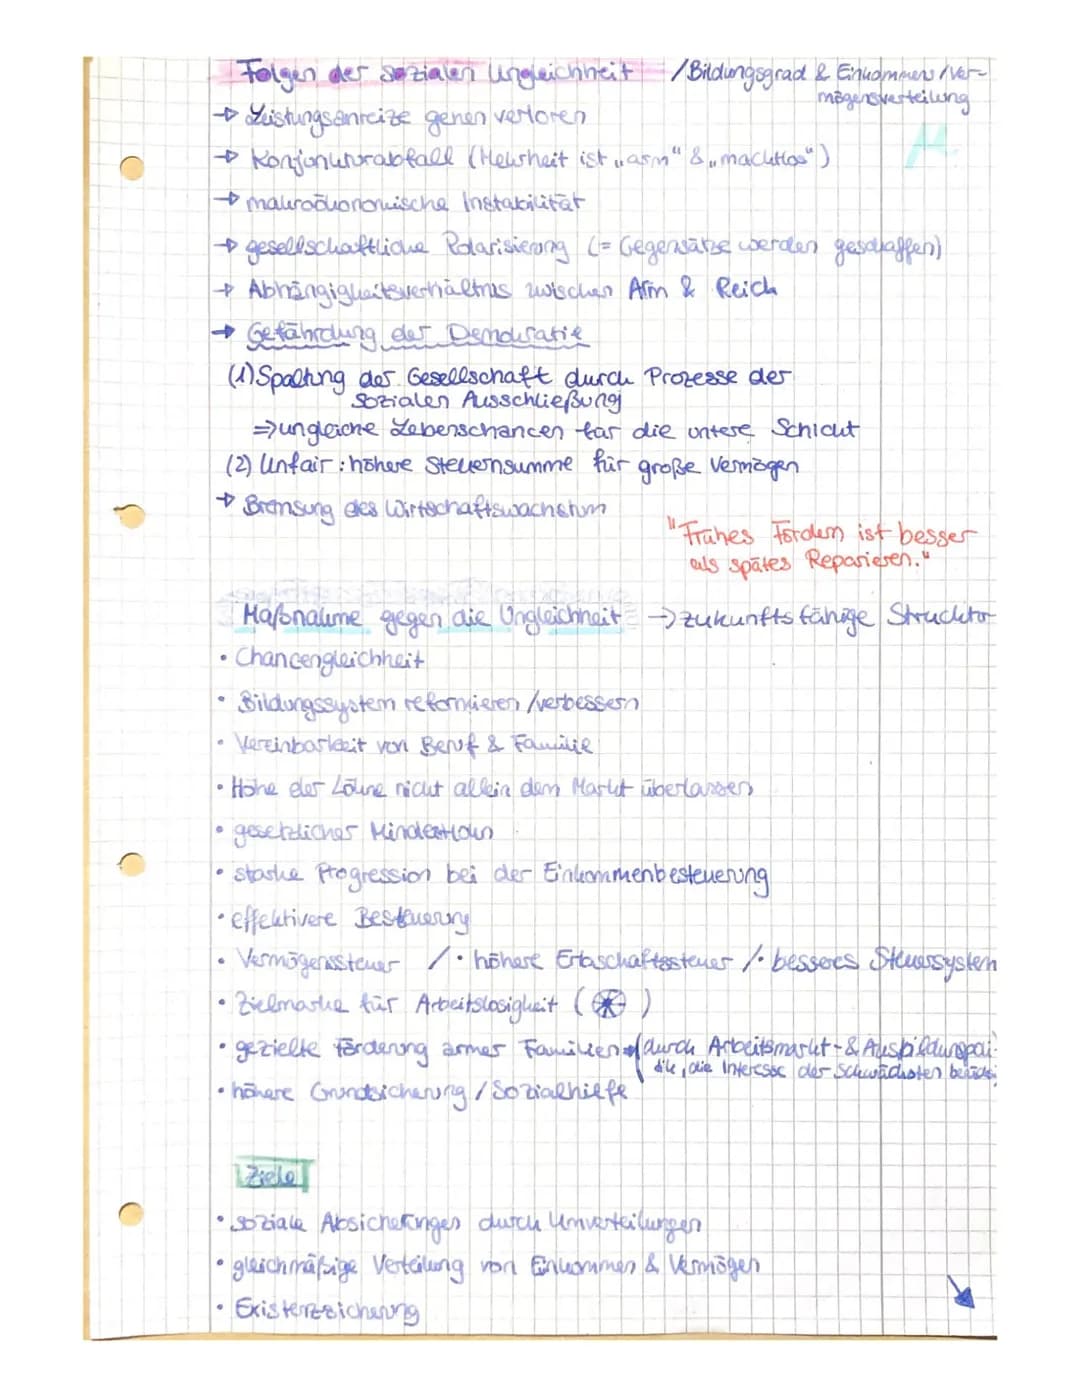 Folgen der sozialen Ungleichheit /Bildungsgrad & Einkommens/Ver-
mögensverteilung
→ Leistungsanreize gehen verloren
→ Konjunkturabfall (Mehrheit ist „arm" & „machtlos")
→ makroökonomische Instabilität
→ gesellschaftliche Polarisierung (= Gegensätze werden geschaffen)
→ Abhängigkeitsverhältnis zwischen Arm & Reich
→ Gefährdung der Demokratie
(1) Spaltung der Gesellschaft durch Prozesse der
sozialen Ausschließung
⇒ ungleiche Lebenschancen für die untere Schicht
(2) Unfair: höhere Steuernsumme für große Vermögen
→ Bremsung des Wirtschaftswachstum
"Frühes Fördern ist besser
als spätes Reparieren."
Maßnahme gegen die Ungleichheit → zukunftsfähige Strucktur
• Chancengleichheit
• Bildungssystem reformieren /verbessern
• Vereinbarkeit von Beruf & Familie
• Höhe der Löhne nicht allein dem Markt überlassen
• gesetzlicher Mindestlohn
• starke Progression bei der Einkommenbesteuerung
• effektivere Besteuerung
• Vermögenssteuer /• höhere Erbschaftssteuer /• besseres Steuersystem
• Zielmarke für Arbeitslosigkeit ( )
• gezielte Förderung armer Familien → (durch Arbeitsmarkt- & Ausbildungspoli-
tik, die Interesse der Schwächsten
• höhere Grundsicherung / Sozialhilfe
Ziele
• soziale Absicherungen durch Umverteilungen
• gleichmäßige Verteilung von Einkommen & Vermögen
• Existenzsicherung